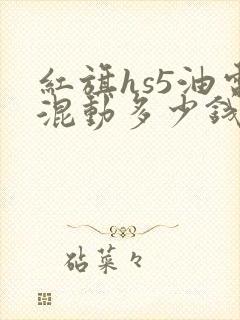 紅旗hs5油電
混動多少錢
砧菜々